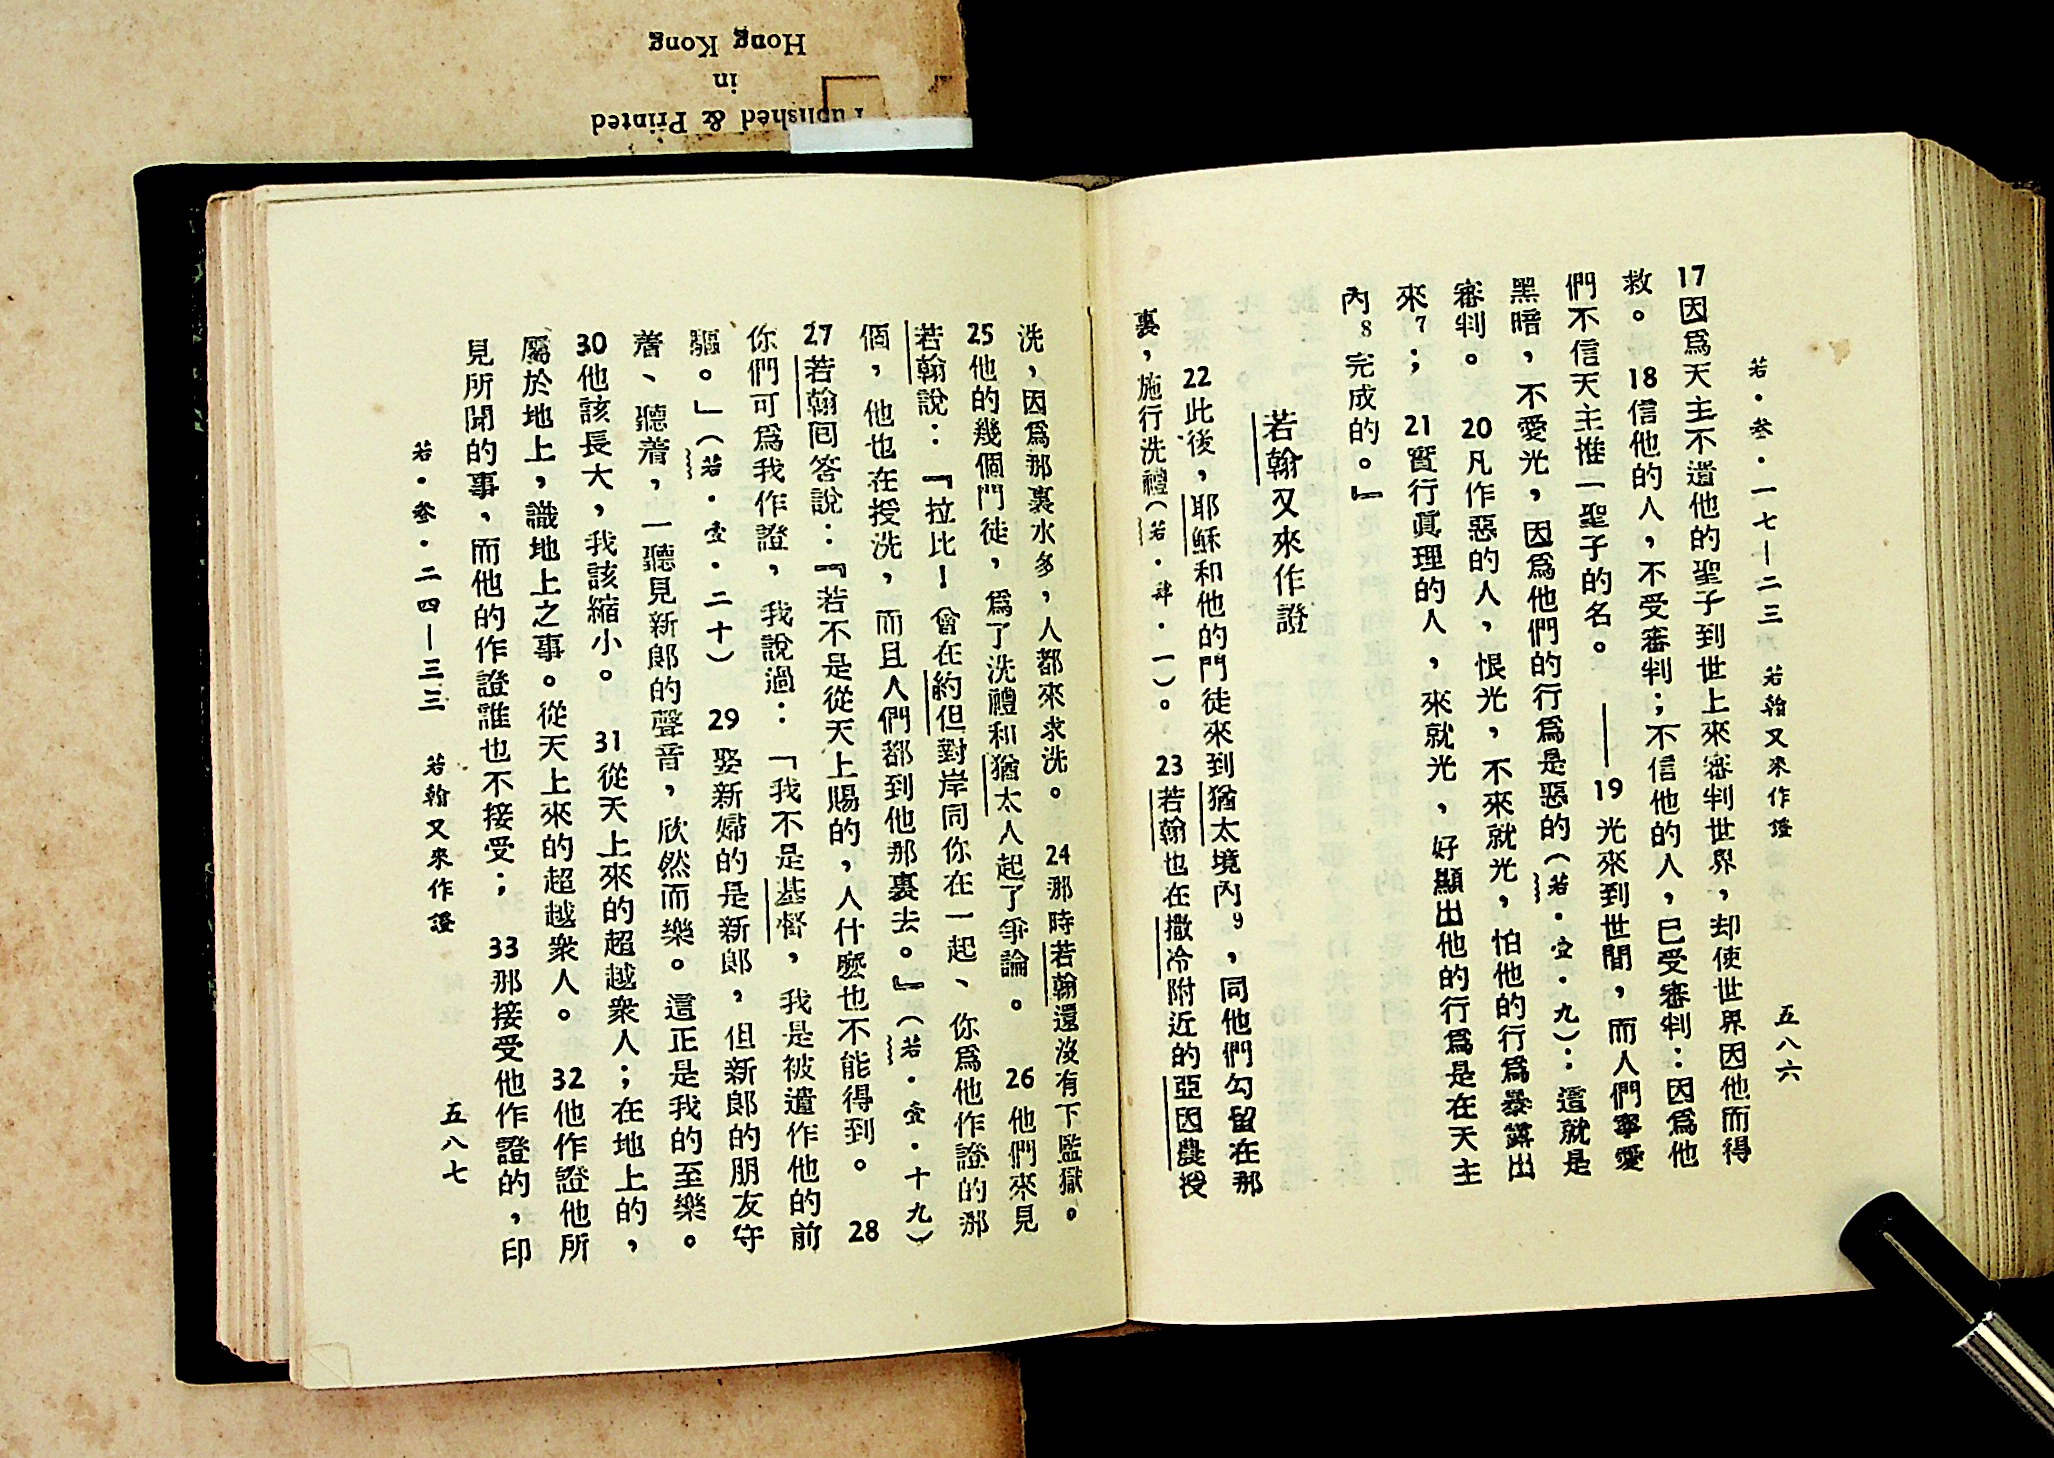 Published & Printed
in
Hong Kong
若・叁・一七—二三 若翰又來作證 五八六
17因爲天主不遣他的聖子到世上來審判世界，却使世界因他而得
救。 18信他的人，不受審判；不信他的人，已受審判：因爲他
們不信天主惟一聖子的名。 ——19光來到世間，而人們寧愛
黑暗，不愛光，因爲他們的行爲是惡的（若・壹・九）：這就是
審判。 20凡作惡的人，恨光，不來就光，怕他的行爲暴露出
來7； 21實行眞理的人，來就光，好顯出他的行爲是在天主
內8完成的。』
若翰又來作證
22此後，耶穌和他的門徒來到猶太境內9，同他們勾留在那
裏，施行洗禮（若・肆・一）。 23若翰也在撒冷附近的亞因農授
洗，因爲那裏水多，人都來求洗。 24那時若翰還沒有下監獄。
25他的幾個門徒，爲了洗禮和猶太人起了爭論。 26他們來見
若翰說：『拉比！曾在約但對岸同你在一起、你爲他作證的那
個，他也在授洗，而且人們都到他那裏去。』（若・壹・十九）
27若翰囘答說：『若不是從天上賜的，人什麼也不能得到。 28
你們可爲我作證，我說過：「我不是基督，我是被遣作他的前
驅。」（若・壹・二十） 29娶新婦的是新郎，但新郎的朋友守
着、聽着，一聽見新郎的聲音，欣然而樂。這正是我的至樂。
30他該長大，我該縮小。 31從天上來的超越衆人；在地上的，
屬於地上，識地上之事。從天上來的超越衆人。 32他作證他所
見所聞的事，而他的作證誰也不接受； 33那接受他作證的，印
若・叁・二四—三三 若翰又來作證 五八七